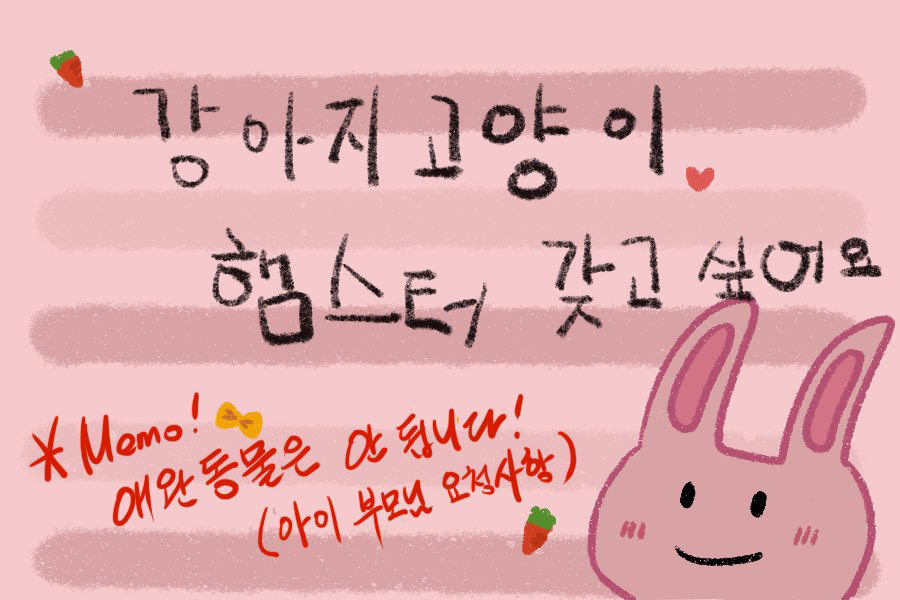 강아지 고양이
햄스터 갖고 싶어요
* Memo!
애완동물은 안 됩니다!
(아이 부모님 요청사항)